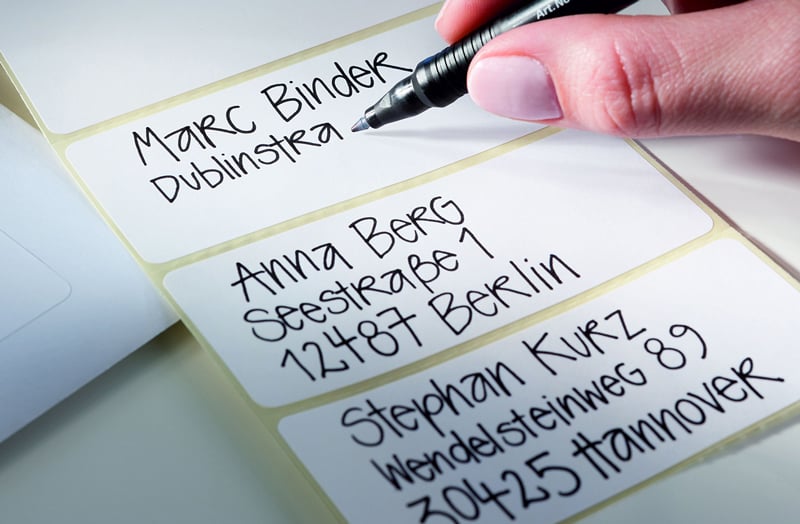 Art.No
Marc Binder
Dublinstra
Anna Berg
Seestraße 1
12487 Berlin
Stephan Kurz
Wendelsteinweg 89
30425 Hannover